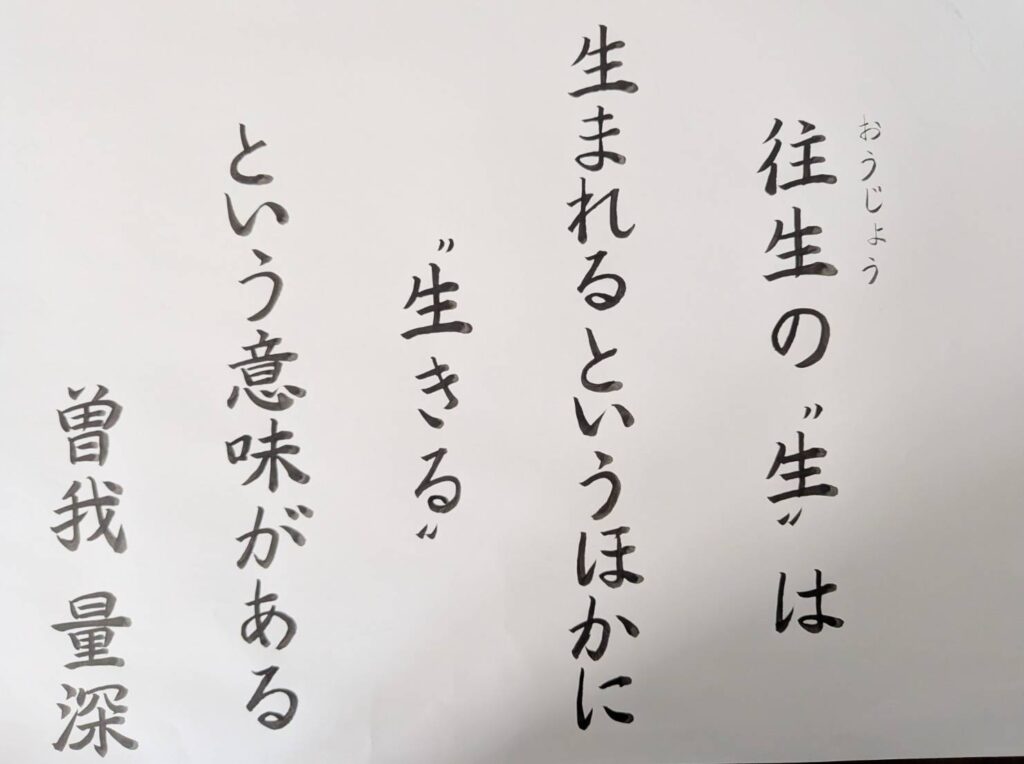 おうじょう
往生の〝生〟は
生まれるというほかに
〝生きる〟
という意味がある
曽我 量深